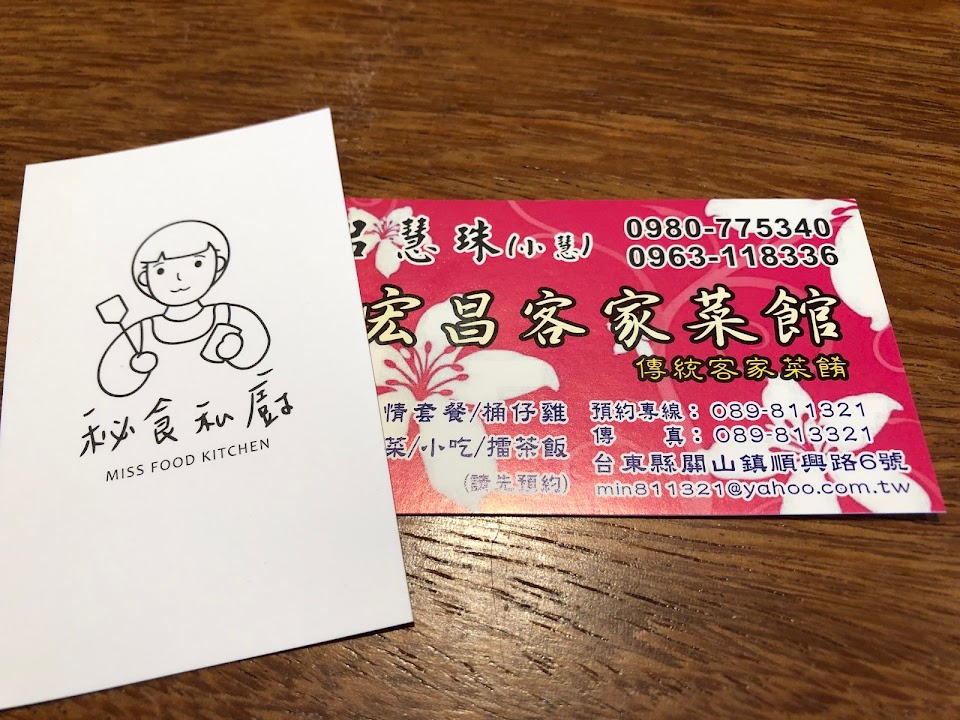 秘食私廚
MISS FOOD KITCHEN
呂慧珠(小慧)
0980-775340
0963-118336
宏昌客家菜館
傳統客家菜餚
情套餐/桶仔雞
菜/小吃/擂茶飯
(請先預約)
預約專線：089-811321
傳 真：089-813321
台東縣關山鎮順興路6號
min811321@yahoo.com.tw